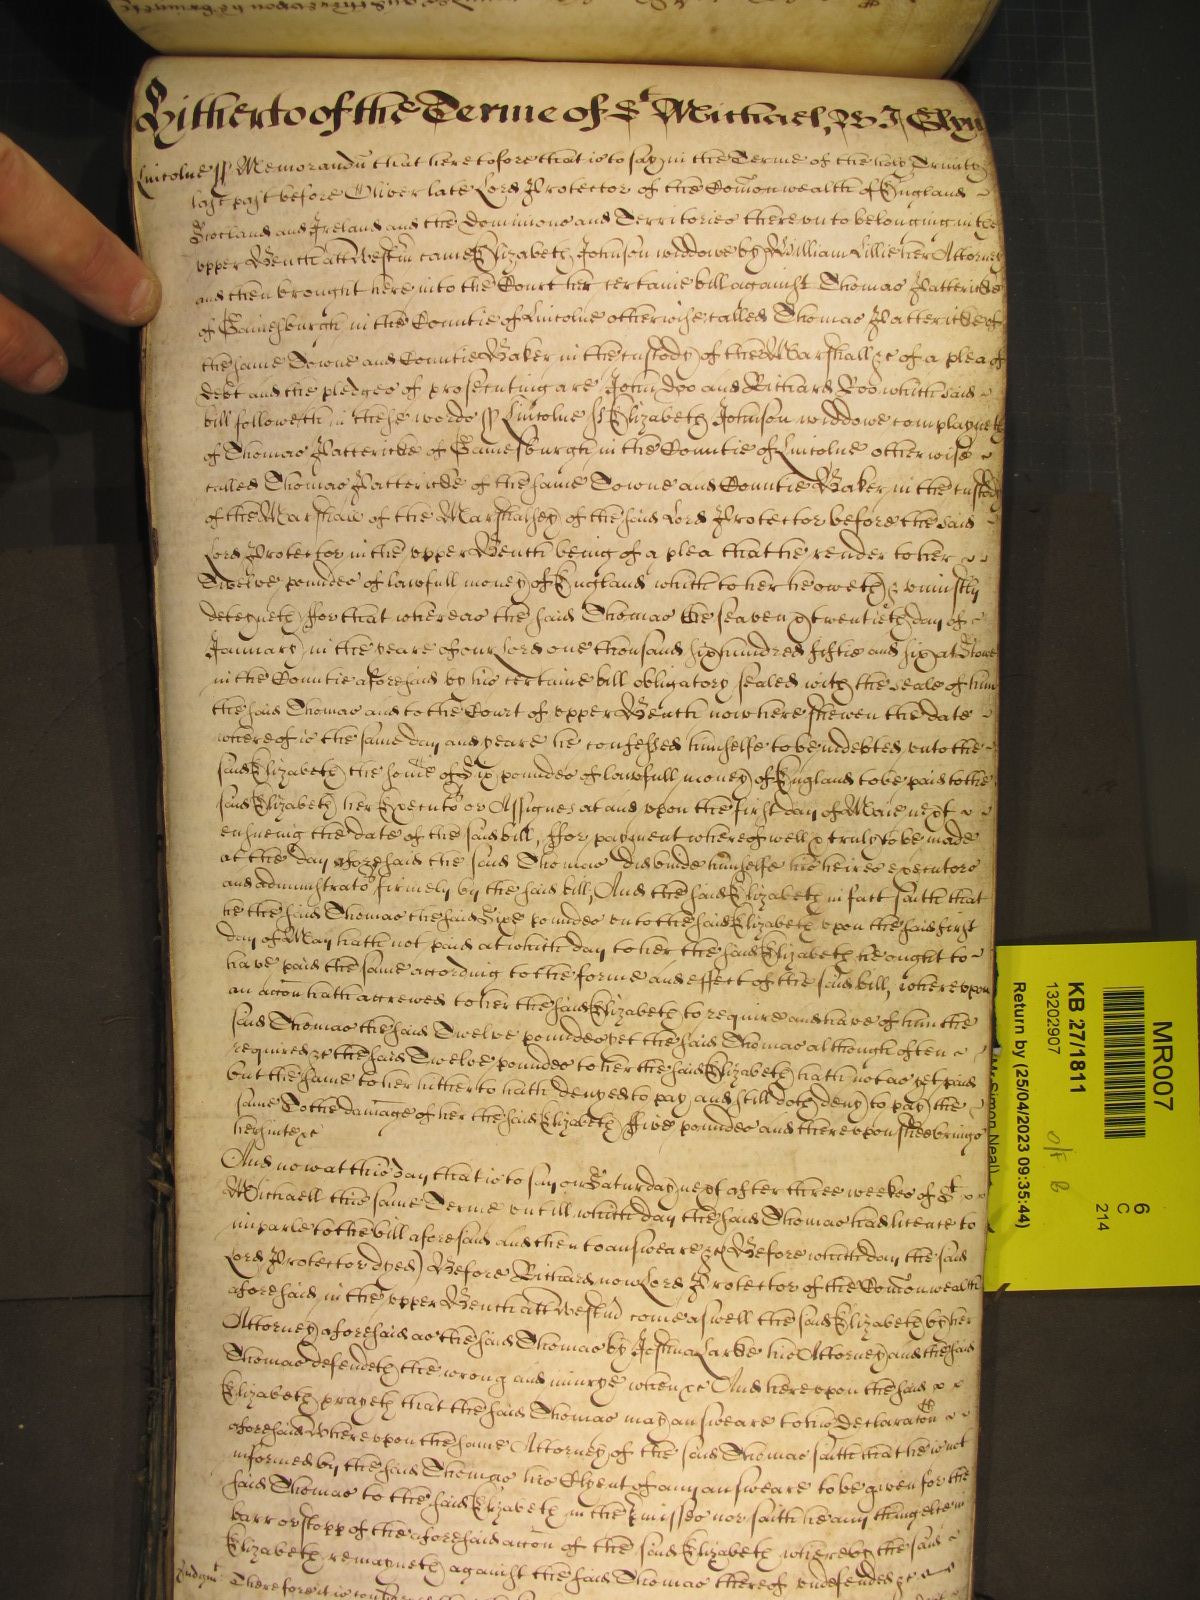 Hitherto of the Terme of St Michael, W J Glyn
Lincolne ss Memorandū that heretofore that is to say in the Terme of the holy Trinity
last past before Oliver late Lord Protector of the Com̄onwealth of England
Scotland and Ireland and the Dominions and Territories thereunto belonging in the
upper Bench att Westm̄ came Elizabeth Johnson widdowe by William Lillie her Attorney
and then brought here into the Court her certaine bill against Thomas Pattericke
of Gainesburgh in the Countie of Lincolne otherwise called Thomas Pattericke of
the same Towne and Countie Baker in the custody of the Marshall &c of a plea of
debt and the pledges of prosecuting are John Doo and Richard Roo which said
bill followeth in these words ss Lincolne ss Elizabeth Johnson widdowe complayneth
of Thomas Pattericke of Gainesburgh in the Countie of Lincolne otherwise
called Thomas Pattericke of the same Towne and Countie Baker in the custody
of the Marshall of the Marshalsey of the said Lord Protector before the said
Lord Protector in the upper Bench being of a plea that he render to her
Twelve poundes of lawfull money of England which to her he oweth & uniustly
deteyneth ffor that whereas the said Thomas the seaven & twentieth day of
January in the yeare of our Lord one thousand six hundred fiftie and six at Stowe
in the Countie aforesaid by his certaine bill obligatory sealed with the seale of him
the said Thomas and to the Court of upper Bench now here shewen the date
whereof is the same day and yeare he confessed himselfe to be indebted unto the
said Elizabeth the som̄e of Six poundes of lawfull money of England to be paid to the
said Elizabeth her Executors or Assignes at and upon the first day of Maie next
ensueing the date of the said bill, ffor payment whereof well & truly to be made
at the day aforesaid the said Thomas did binde himselfe his heires executors
and administrators firmely by the said bill, And the said Elizabeth in fact saith that
he the said Thomas the said Six poundes unto the said Elizabeth upon the said first
day of May hath not paid at which day to her the said Elizabeth he ought to
have paid the same according to the forme and effect of the said bill, whereupon
an accon hath accrewed to her the said Elizabeth to require and have of him the
said Thomas the said Twelve poundes yet the said Thomas although often
required &c the said Twelve poundes to her the said Elizabeth hath not as yet paid
but the same to her hitherto hath denyed to pay and still doth deny to pay the
same To the damage of her the said Elizabeth ffive poundes and thereupon shee brings
her suite &c
And now at this day that is to say on Saturday next after three weekes of St
Michaell this same Terme untill which day the said Thomas had licence to
imparle to the bill aforesaid and then to answeare &c (Before which day the said
Lord Protector dyed) Before Richard now Lord Protector of the Com̄onwealth
aforesaid in the upper Bench att Westm̄ come aswell the said Elizabeth by her
Attorney aforesaid as the said Thomas by Joshua Larke his Attorney and the said
Thomas defendeth the wrong and iniurye when &c And hereupon the said
Elizabeth prayeth that the said Thomas may answeare to his Declaration
aforesaid Whereupon the same Attorney of the said Thomas saith that he is not
informed by the said Thomas his Clyent of any answeare to be given for the
said Thomas to the said Elizabeth in the p̄misses nor saith he any thing else in
barr or stopp of the aforesaid accon of the said Elizabeth whereby the said
Elizabeth remayneth against the said Thomas thereof undefended &c
Judgmt Therefore it is
MR007
6
C
214
KB 27/1811
13202907
o/f B
Return by (25/04/2023 09:35:44)
Simon Neal)